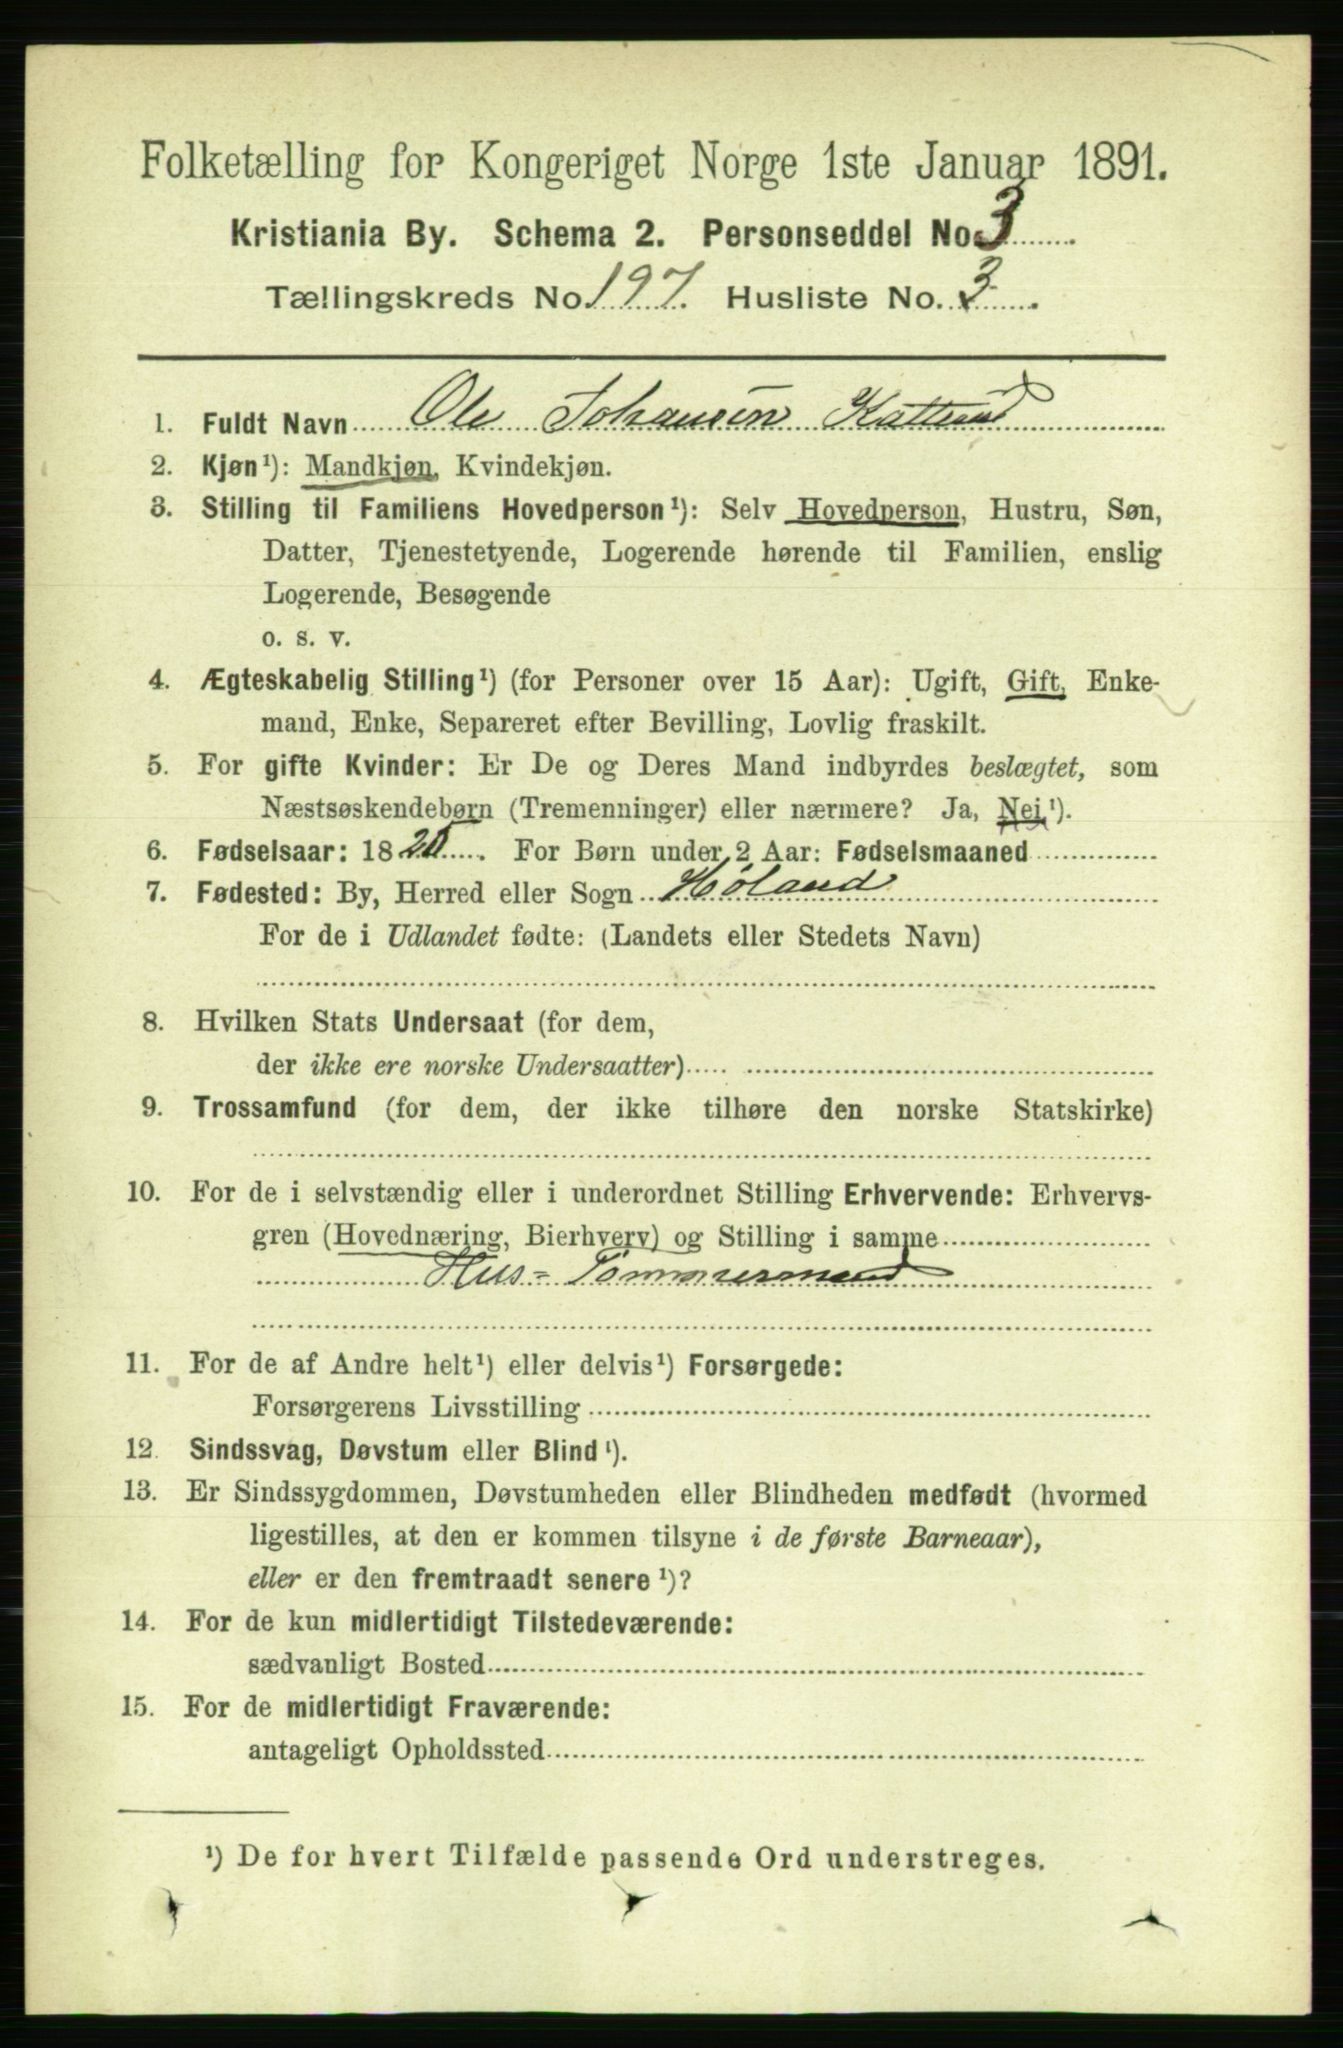 Folketælling for Kongeriget Norge 1ste Januar 1891.
Kristiania By. Schema 2. Personseddel No. 3
Tællingskreds No. 197. Husliste No. 3.
1. Fuldt Navn Ole Johansen
2. Kjøn¹): Mandkjøn, Kvindekjøn.
3. Stilling til Familiens Hovedperson¹): Selv Hovedperson, Hustru, Søn,
Datter, Tjenestetyende, Logerende hørende til Familien, enslig
Logerende, Besøgende
o. s. v.
4. Ægteskabelig Stilling¹) (for Personer over 15 Aar): Ugift, Gift, Enke-
mand, Enke, Separeret efter Bevilling, Lovlig fraskilt.
5. For gifte Kvinder: Er De og Deres Mand indbyrdes beslægtet, som
Næstsøskendebørn (Tremenninger) eller nærmere? Ja, Nei¹).
6. Fødselsaar: 18 . For Børn under 2 Aar: Fødselsmaaned
7. Fødested: By, Herred eller Sogn Høland
For de i Udlandet fødte: (Landets eller Stedets Navn)
8. Hvilken Stats Undersaat (for dem,
der ikke ere norske Undersaatter)
9. Trossamfund (for dem, der ikke tilhøre den norske Statskirke)
10. For de i selvstændig eller i underordnet Stilling Erhvervende: Erhvervs-
gren (Hovednæring, Bierhverv) og Stilling i samme
Hus-Tømmermand
11. For de af Andre helt¹) eller delvis¹) Forsørgede:
Forsørgerens Livsstilling
12. Sindssvag, Døvstum eller Blind¹).
13. Er Sindssygdommen, Døvstumheden eller Blindheden medfødt (hvormed
ligestilles, at den er kommen tilsyne i de første Barneaar),
eller er den fremtraadt senere¹)?
14. For de kun midlertidigt Tilstedeværende:
sædvanligt Bosted
15. For de midlertidigt Fraværende:
antageligt Opholdssted
¹) De for hvert Tilfælde passende Ord understreges.